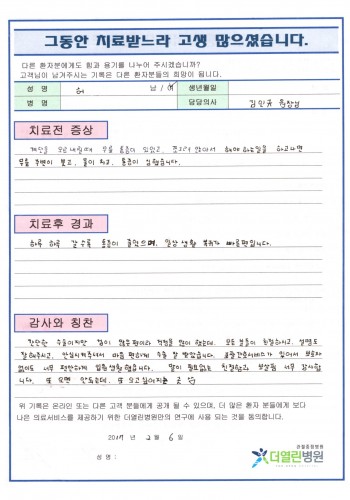 그동안 치료받느라 고생 많으셨습니다.
다른 환자분에게도 힘과 용기를 나누어 주시겠습니까?
고객님이 남겨주시는 기록은 다른 환자분들의 희망이 됩니다.
성 명 허 남 / 여 생년월일
병 명 담당의사 김민규 원장님
치료전 증상
계단을 오르내릴때 무릎 통증이 있었고, 쪼그려 앉아서 해야 하는일을 하고나면
무릎 주변이 붓고, 물이 차고, 통증이 심했습니다.
치료후 경과
하루 하루 갈수록 통증이 줄었으며, 일상생활 복귀가 빠른편입니다.
감사와 칭찬
간단한 수술이지만 겁이 많은편이라 걱정을 많이 했는데, 모든 분들이 친절하시고, 설명도
잘해주시고, 안심시켜주셔서 마음 편하게 수술 잘 받았습니다. 통합간호서비스가 있어서 보호자
없이도 너무 편안하게 입원생활 했습니다. 말이 필요없는 친절함과 보살핌 너무 감사합니
다. 또 오면 안되는데, 또 오고싶어지는 곳
위 기록은 온라인 또는 다른 고객 분들에게 공개 될 수 있으며, 더 많은 환자 분들에게 보다
나은 의료서비스를 제공하기 위한 더열린병원만의 연구에 사용 되는 것을 동의합니다.
2017 년 2 월 6 일
성 명 :
관절중점병원
더열린병원